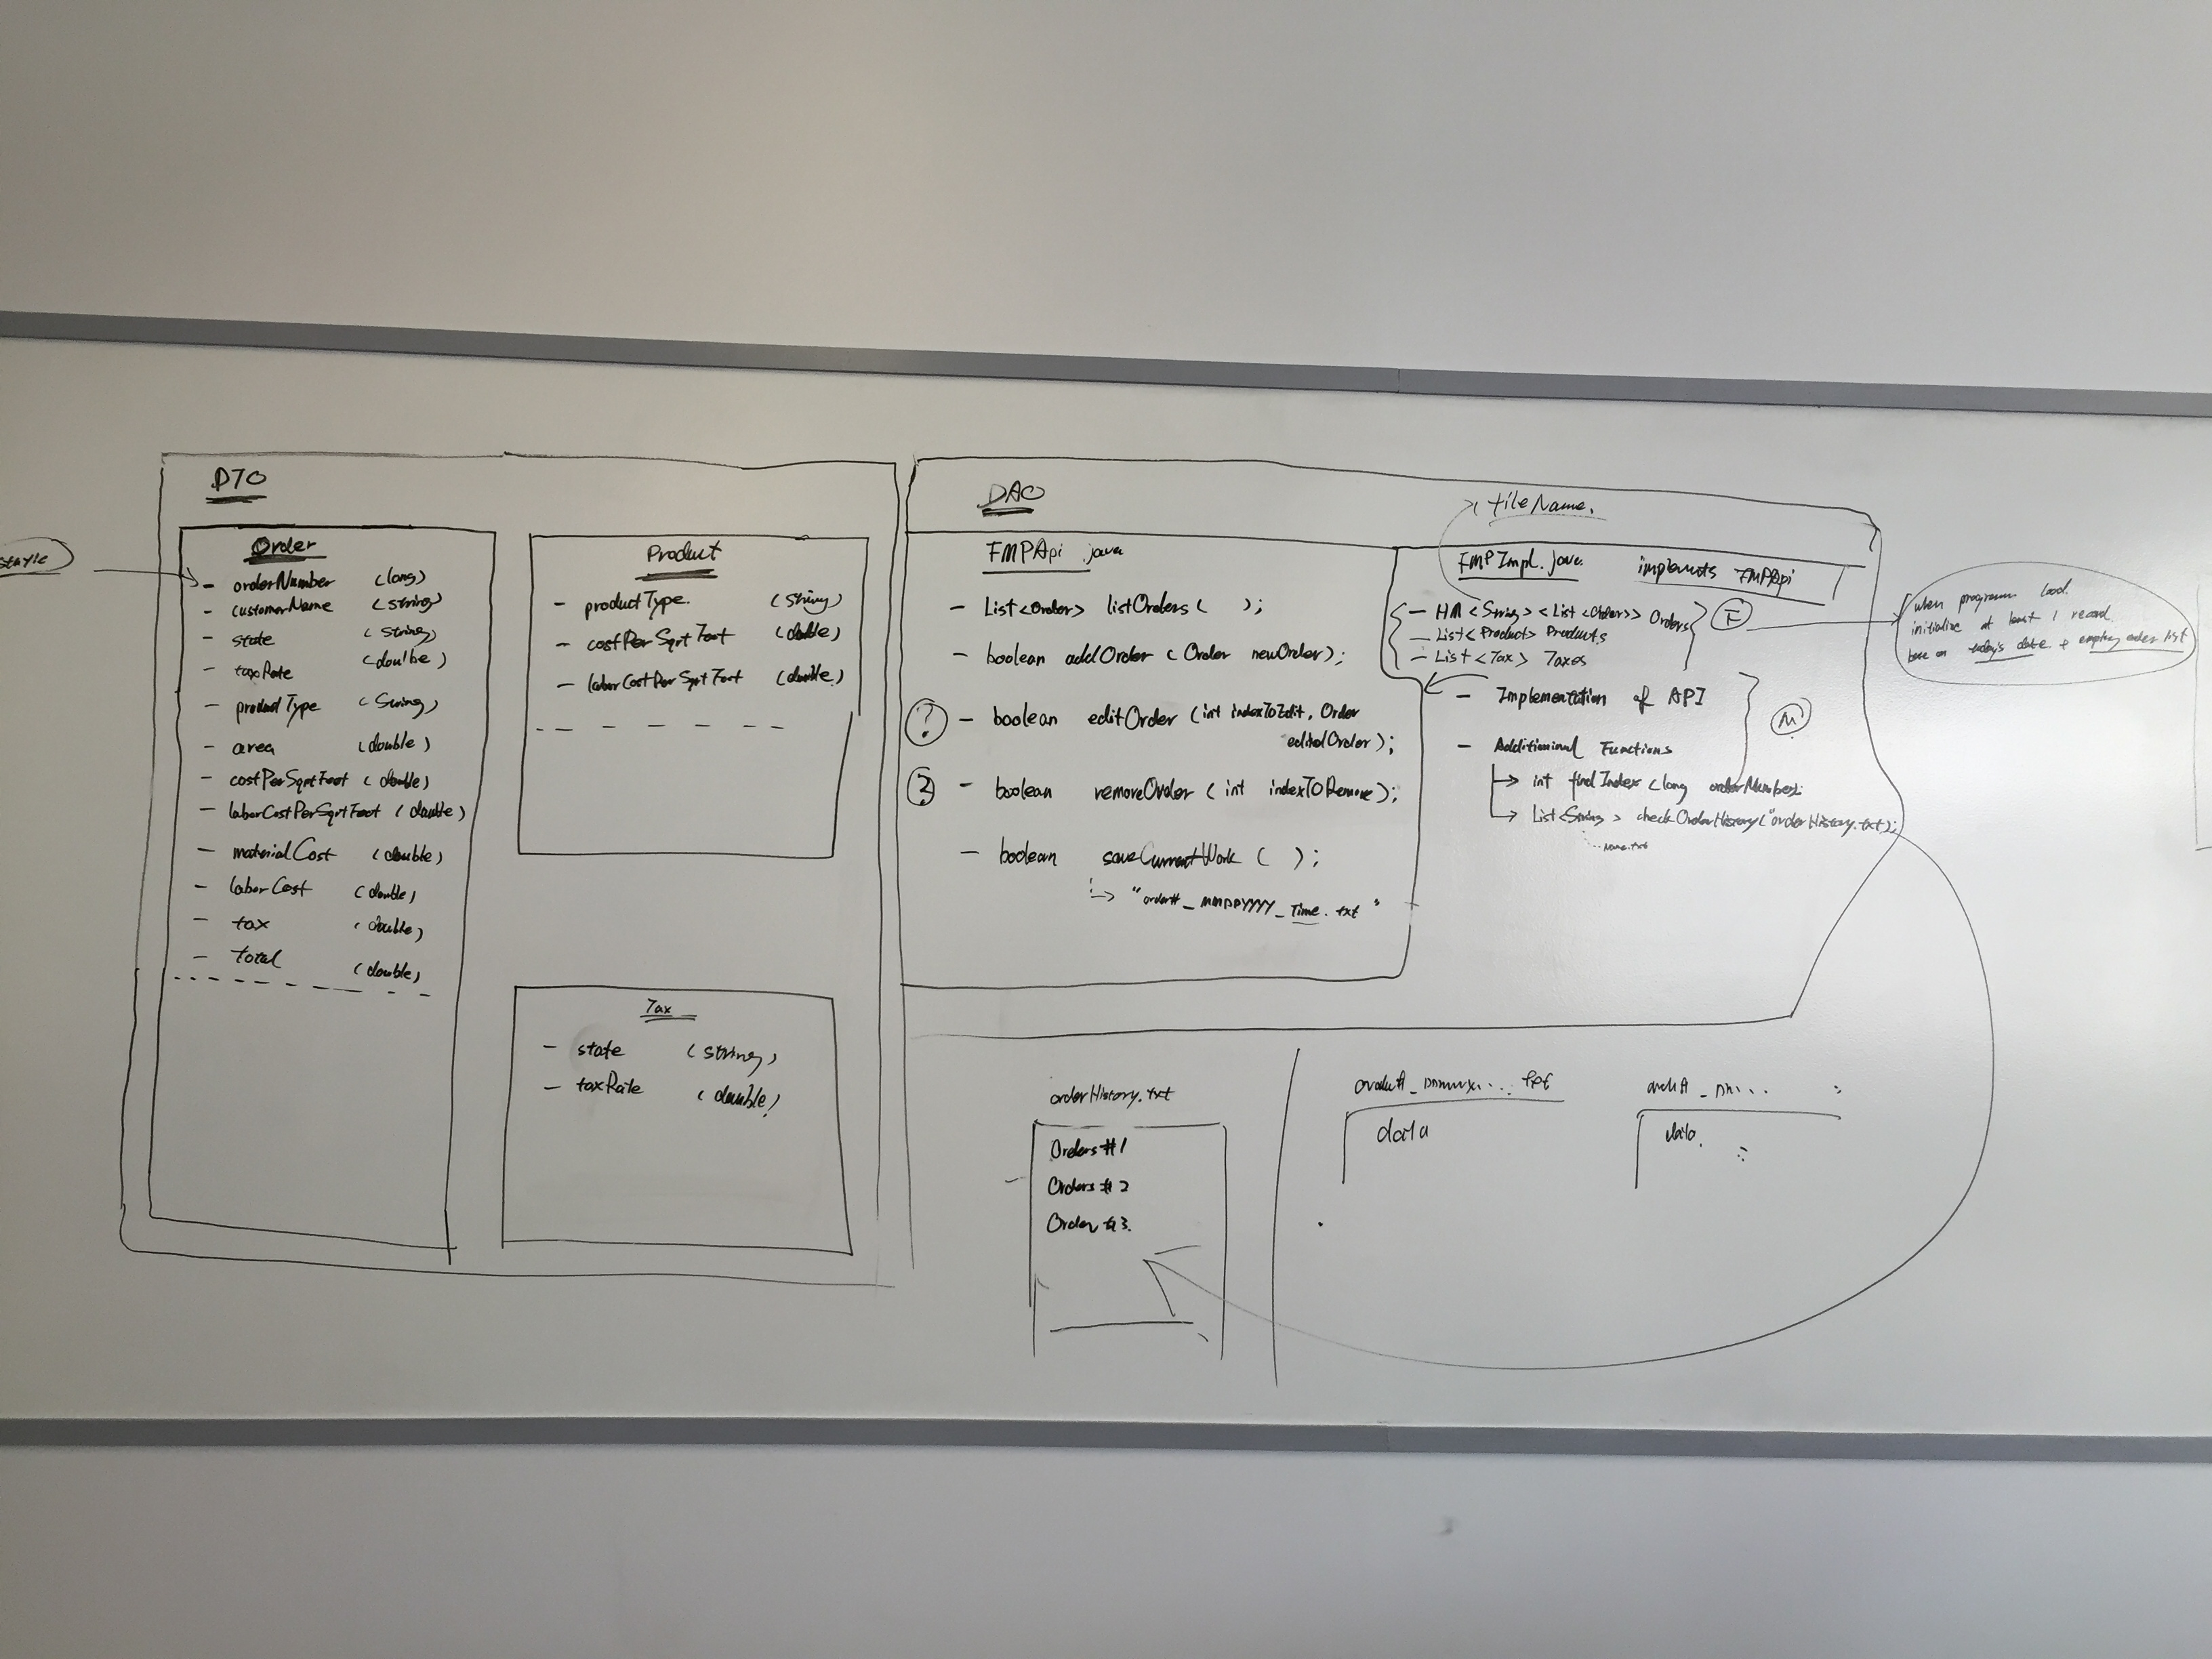 DTO
Order
- orderNumber (long)
- customerName (string)
- state (string)
- taxRate (double)
- productType (String)
- area (double)
- costPerSqrtFoot (double)
- laborCostPerSqrtFoot (double)
- materialCost (double)
- laborCost (double)
- tax (double)
- total (double)
Product
- productType. (String)
- costPerSqrtFoot (double)
- laborCostPerSqrtFoot (double)
Tax
- state (string)
- taxRate (double)
DAO
FMPApi java
- List<Order> listOrders ( );
- boolean addOrder (Order newOrder);
? - boolean editOrder (int indexToEdit, Order
editedOrder);
? - boolean removeOrder (int indexTORemove);
- boolean saveCurrentWork ( );
"order#_MMDDYYYY_Time.txt"
fileName.
FMPImpl.java implements FMPApi
- HM <String> <List <Order>> Orders
- List<Product> Products
- List<Tax> Taxes
F
- Implementation of API
- Additional Functions
M
int findIndex (long orderNumber);
List<String> checkOrderHistory("orderHistory.txt);
Name.txt
when programm load.
initialize at least 1 record.
base on today's date + empty order list
orderHistory.txt
Orders #1
Orders #2
Order #3.
data
data.